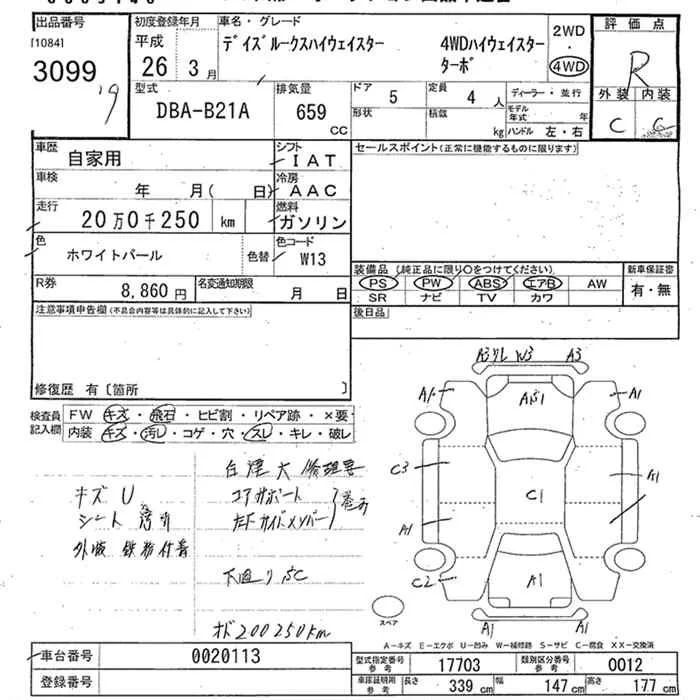 出品番号
[1084]
3099
初度登録年月
平成
26 3月
車名・グレード
デイズルークスハイウェイスター 4WDハイウェイスター
ターボ
2WD
・
4WD
評価点
R
外装 内装
C C
型式
DBA-B21A
排気量
659
CC
ドア
5
定員
4 人
ディーラー・並行
形状
積載
kg
モデル年式 年
ハンドル 左・右
車歴
自家用
シフト
IAT
車検
年 月( 日)
冷房
AAC
走行
20万0千250 km
燃料
ガソリン
色
ホワイトパール
色替
色コード
W13
R券
8,860円
名変通知期限
月 日
セールスポイント(正常に機能するものに限ります)
装備品 (純正品に限り○をつけてください)
PS PW ABS エアB AW
SR ナビ TV カワ
新車保証書
有・無
後日品
注意事項申告欄(不具合内容等は具体的に記入して下さい)
修復歴 有〔箇所 〕
検査員
記入欄
FW キズ・飛石・ヒビ割・リペア跡・×要
内装 キズ・汚レ・コゲ・穴・スレ・キレ・破レ
キズ U
シート
外板 鉄粉付着
コアサポート
サイドメンバー
オド200250km
A3 W3 A3
A1 A1
C3
C1
A1
C2
A1
A1 A1
スペア
A-キズ E-エクボ U-凹み W-補修跡 S-サビ C-腐食 XX-交換済
車台番号
0020113
登録番号
型式指定番号
参考
17703
類別区分番号
参考
0012
車庫証明用
参考
長さ 339 cm 幅 147 cm 高さ 177 cm